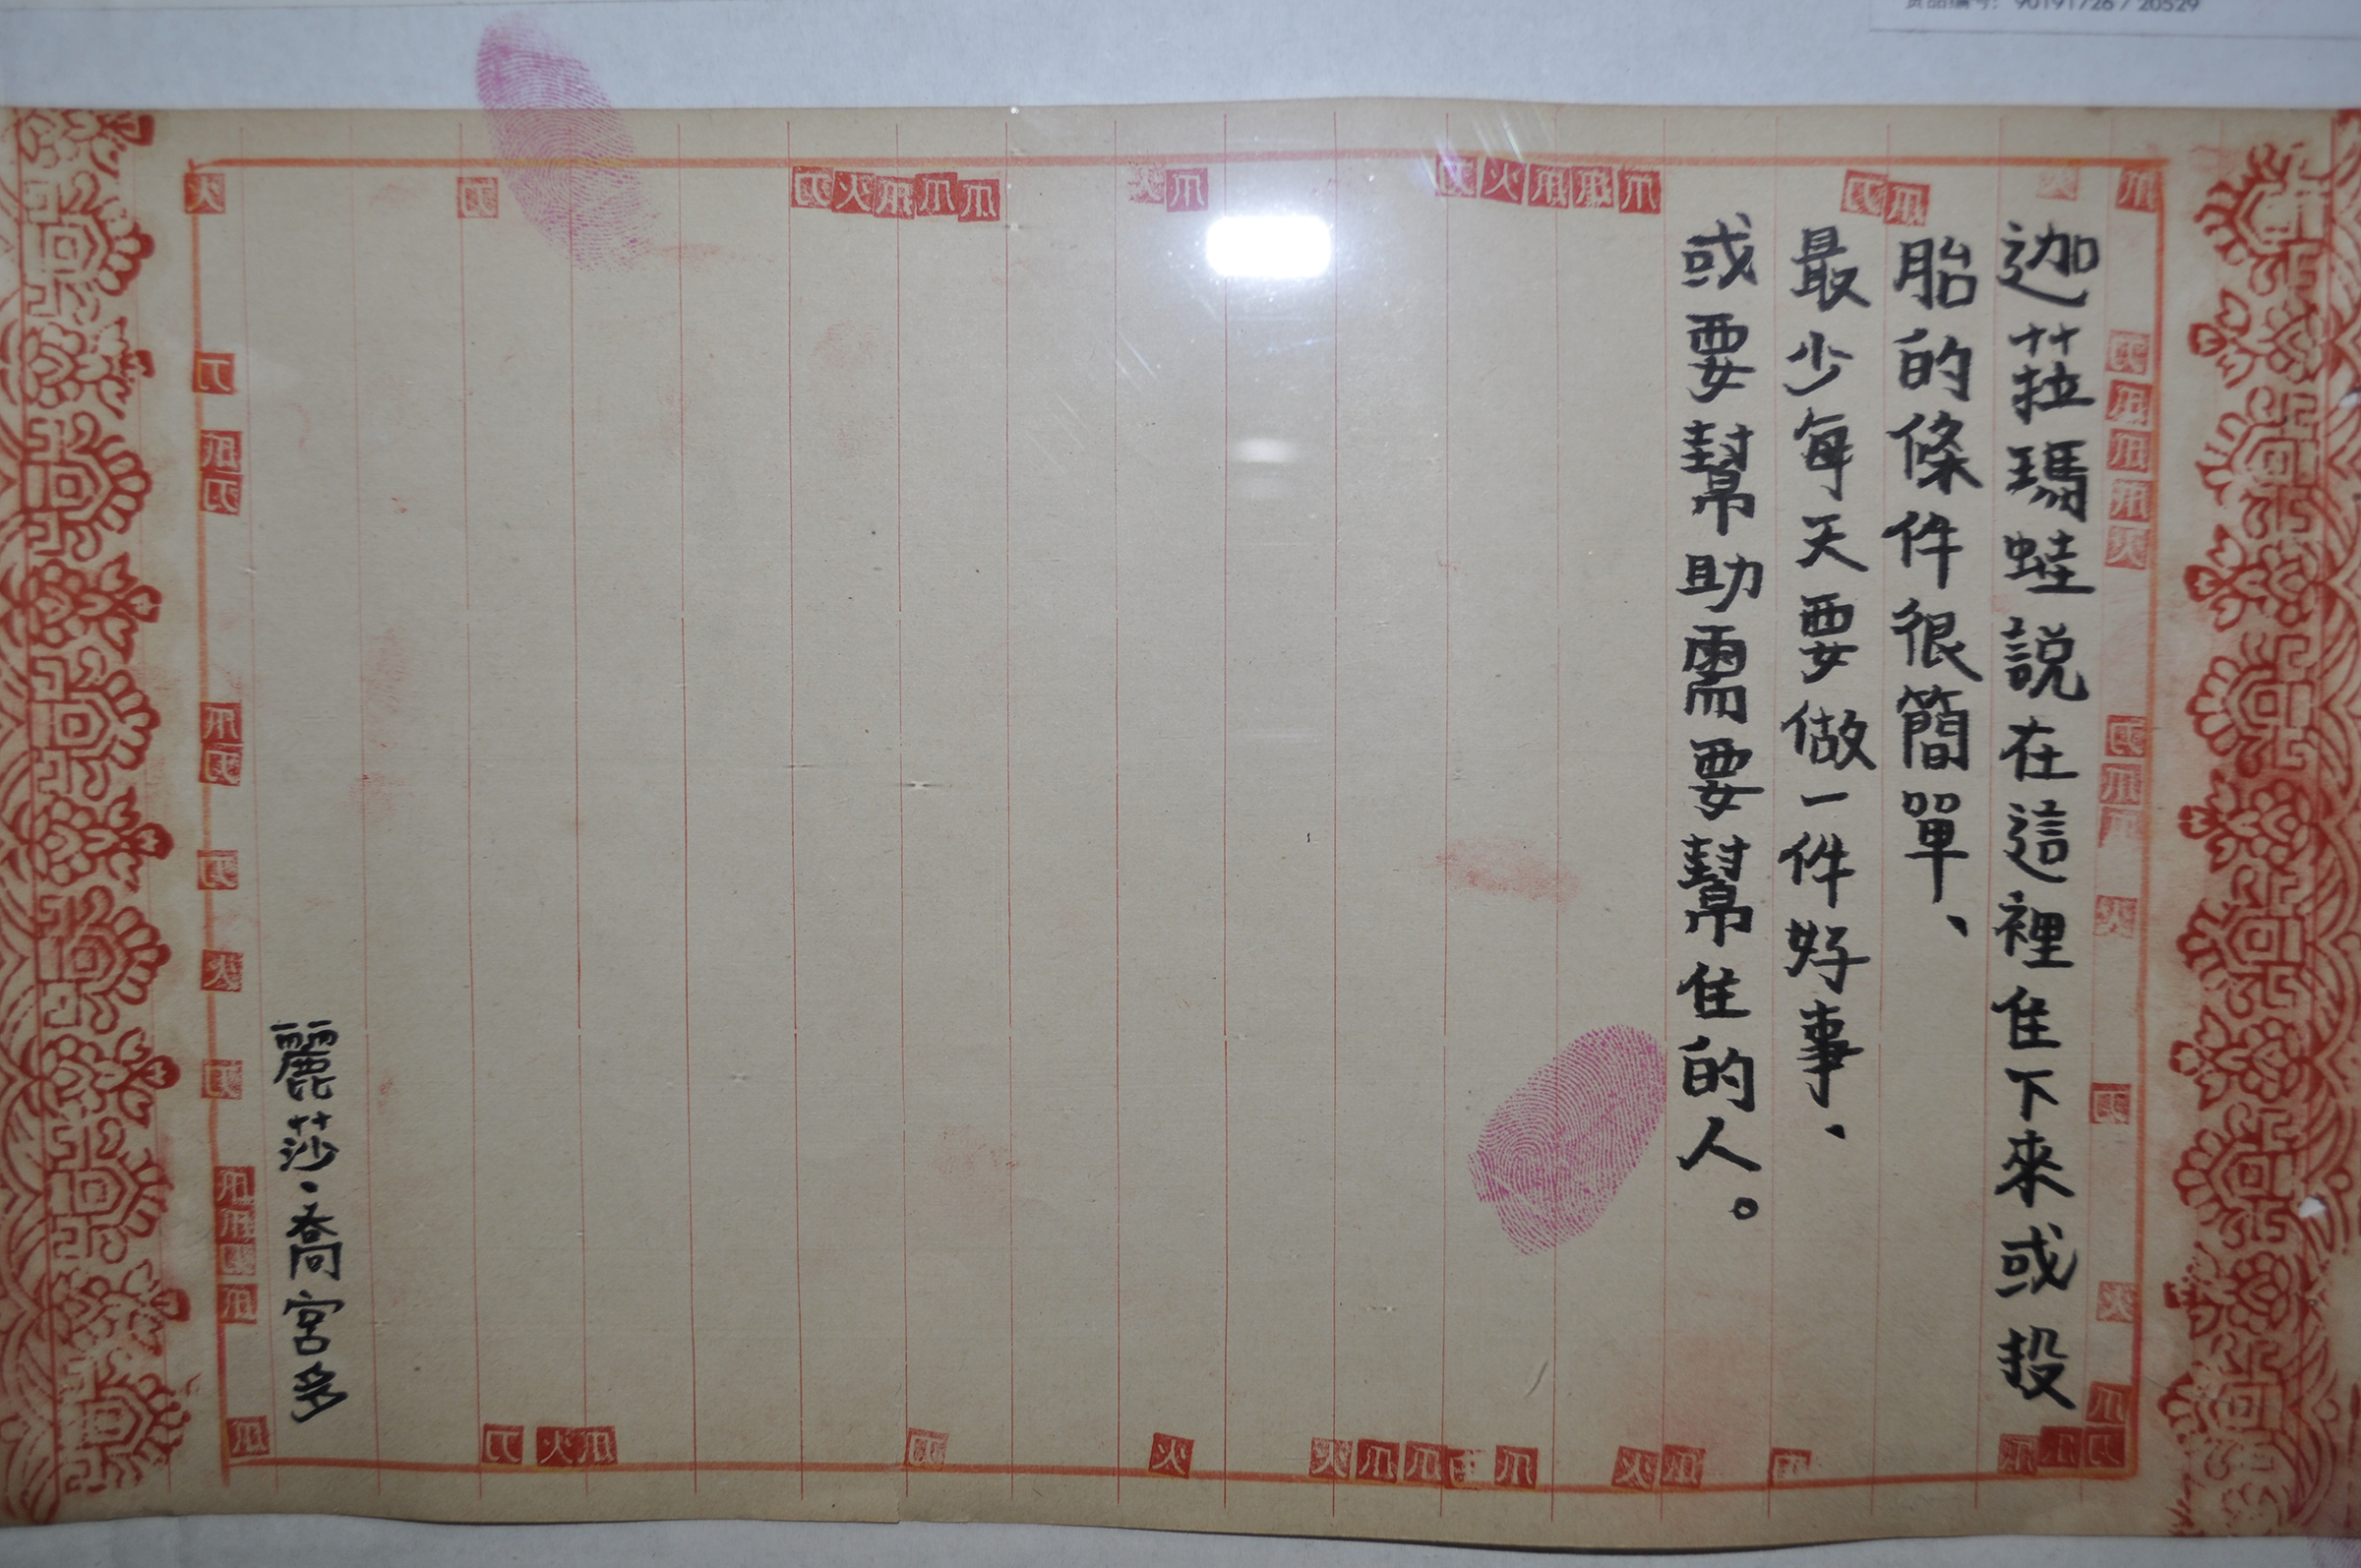 迦菈瑪蛙説在這裡住下來或投
胎的條件很簡單、
最少每天要做一件好事、
或要幫助需要幫住的人。
麗莎·喬宮多
货品编号: 90191726 / 20529